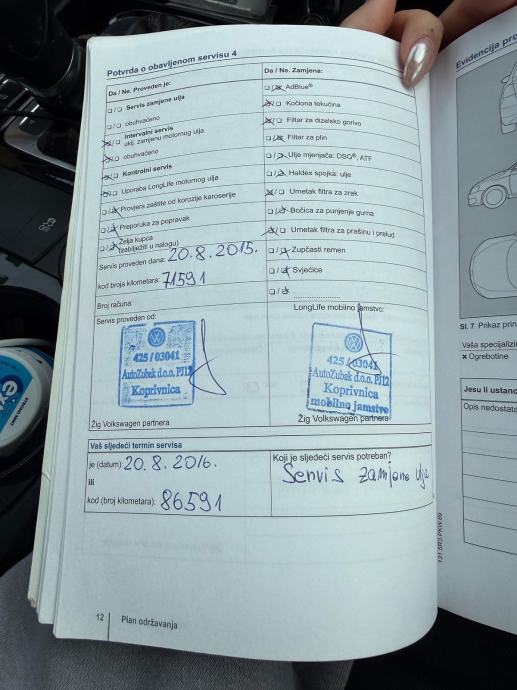 Potvrda o obavljenom servisu 4
Da / Ne. Proveden je:
Servis zamjene ulja
obuhvaćeno
Intervalni servis
uklj. zamjenu motornog ulja
obuhvaćeno
Kontrolni servis
Uporaba LongLife motornog ulja
Provjera zaštite od korozije karoserije
Preporuka za popravak
Želja kupca
(zabilježiti u nalogu)
Servis proveden dana: 20.8.2015.
kod broja kilometara: 71591
Broj računa:
Servis proveden od:
425 / 03041
AutoZubak d.o.o. PJ12
Koprivnica
Žig Volkswagen partnera
Da / Ne. Zamjena:
AdBlue®
Kočiona tekućina
Filtar za dizelsko gorivo
Filtar za plin
Ulje mjenjača: DSG®, ATF
Haldex spojka: ulje
Umetak filtra za zrak
Bočica za punjenje guma
Umetak filtra za prašinu i pelud
Zupčasti remen
Svjećice
LongLife mobilno jamstvo:
425 / 03041
AutoZubak d.o.o. PJ12
Koprivnica
mobilno jamstvo
Žig Volkswagen partnera
Vaš sljedeći termin servisa
je (datum): 20.8.2016.
ili
kod (broj kilometara): 86591
Koji je sljedeći servis potreban?
Servis zamjene ulja
12
Plan održavanja
Evidencija
Sl. 7 Prikaz
Vaša
× Ogrebotine
Jesu li
Opis